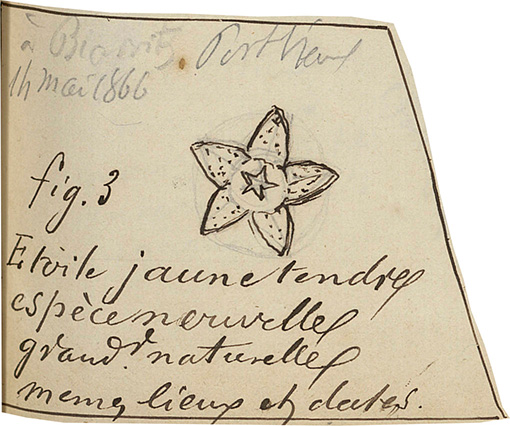 à Biarritz. Port Vieux
14 mai 1866
fig. 3
Etoile jaune tendre
espèce nouvelle
grand.r naturelle
meme lieux et dates.